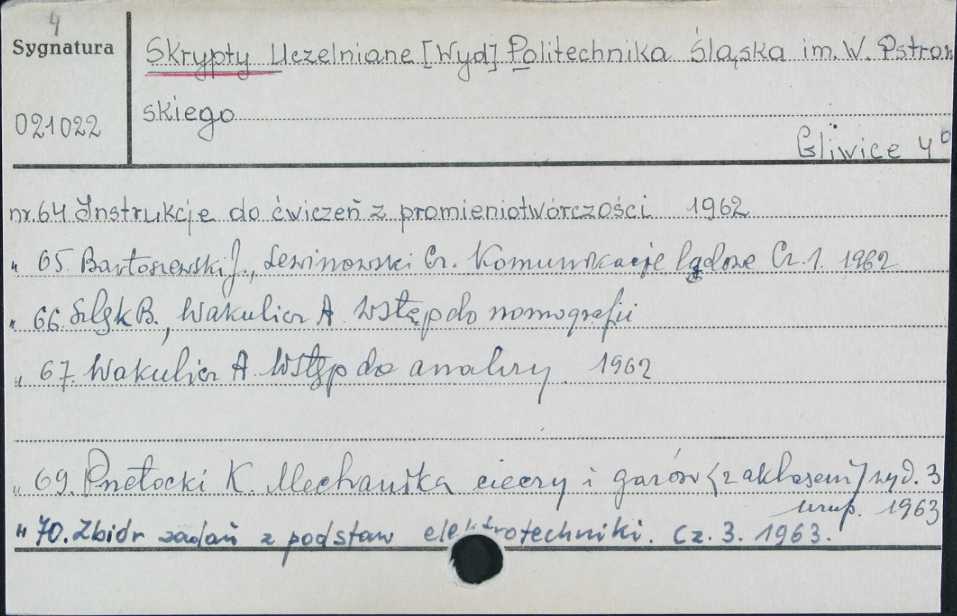 4
Sygnatura
021022
Skrypty Uczelniane [Wyd] Politechnika Śląska im. W. Pstrow
skiego
Gliwice 4°
nr. 64 Instrukcje do ćwiczeń z promieniotwórczości 1962
" 65. Bartoszewski J., Lewinowski Cz. Komunikacje lądowe Cz. 1. 1962
" 66. B., Wakulicz A Wstęp do nomografii
" 67. Wakulicz A Wstęp do analizy. 1962
" 69. K. Mechanika cieczy i gazów wyd. 3
uzup. 1963
" 70. Zbiór zadań z podstaw elektrotechniki. Cz. 3. 1963.